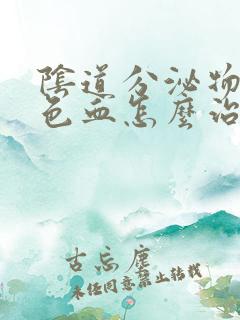 陰道分泌物
色血怎麼治
古忘塵
未经同意禁止转载